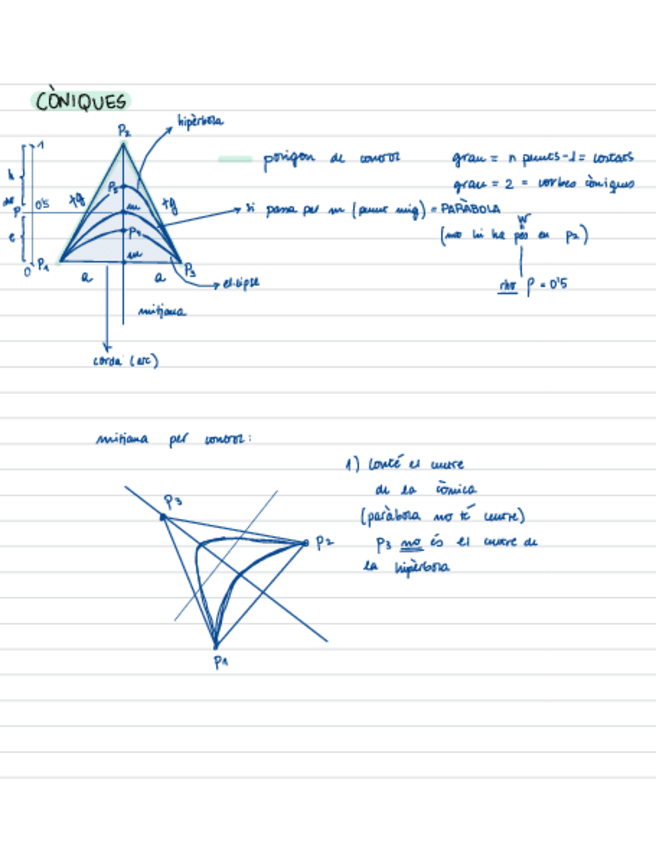 CÒNIQUES
P2
hipèrbola
1
h
0'5
P
e
0
tg
tg
P3
m
P1
m
P1
P3
a
a
el·lipse
mitjana
corda (arc)
polígon de control
grau = n punts - 1 = costats
grau = 2 = corbes còniques
si passa per m (punt mig) = PARÀBOLA
W
(no hi ha pes en P2)
rho ρ = 0'5
mitjana per control:
P3
P2
P1
1) conté el centre
de la cònica
(paràbola no té centre)
P3 no és el centre de
la hipèrbola